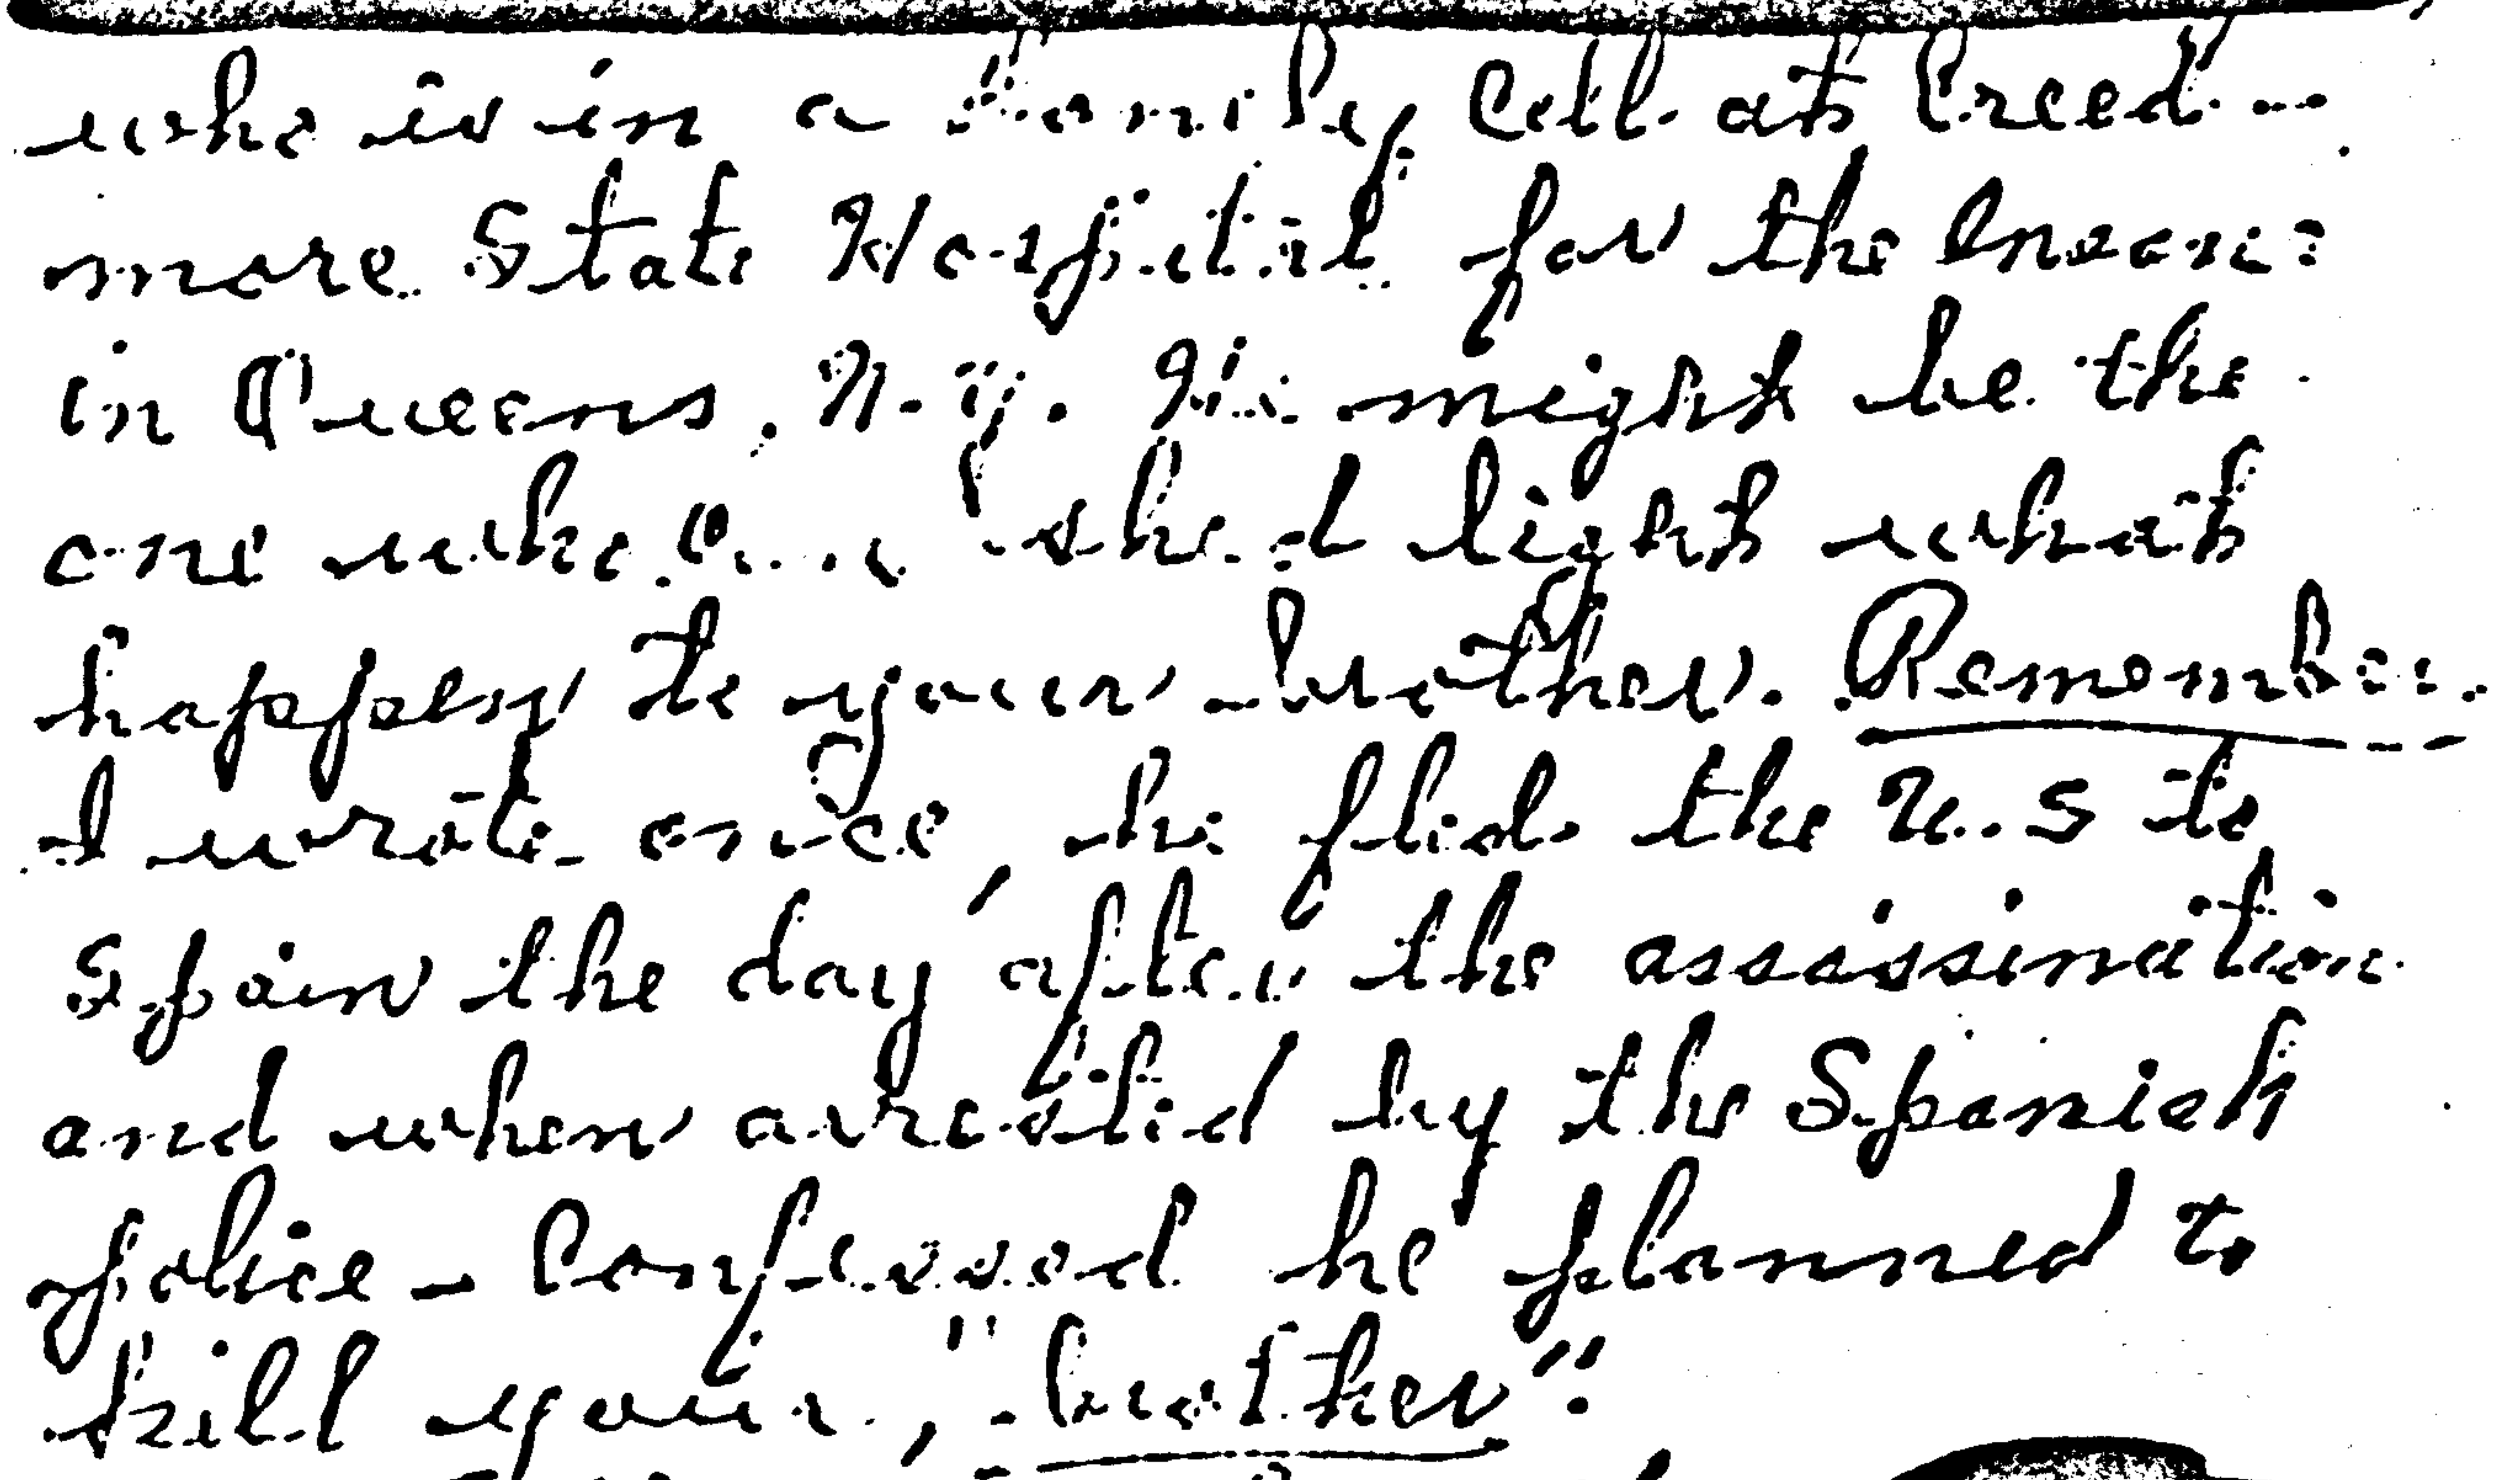 who is in a Family Cell at Creed-
more State Hospital for the Insane
in Queens, N.Y. He might be the
one who can shed light what
happen to your brother. Remember
I wrote once, he flid the U.S to
Spain the day after the assassination
and when arhested by the Spanish
police - Confessed he planned to
kill your, "brother".